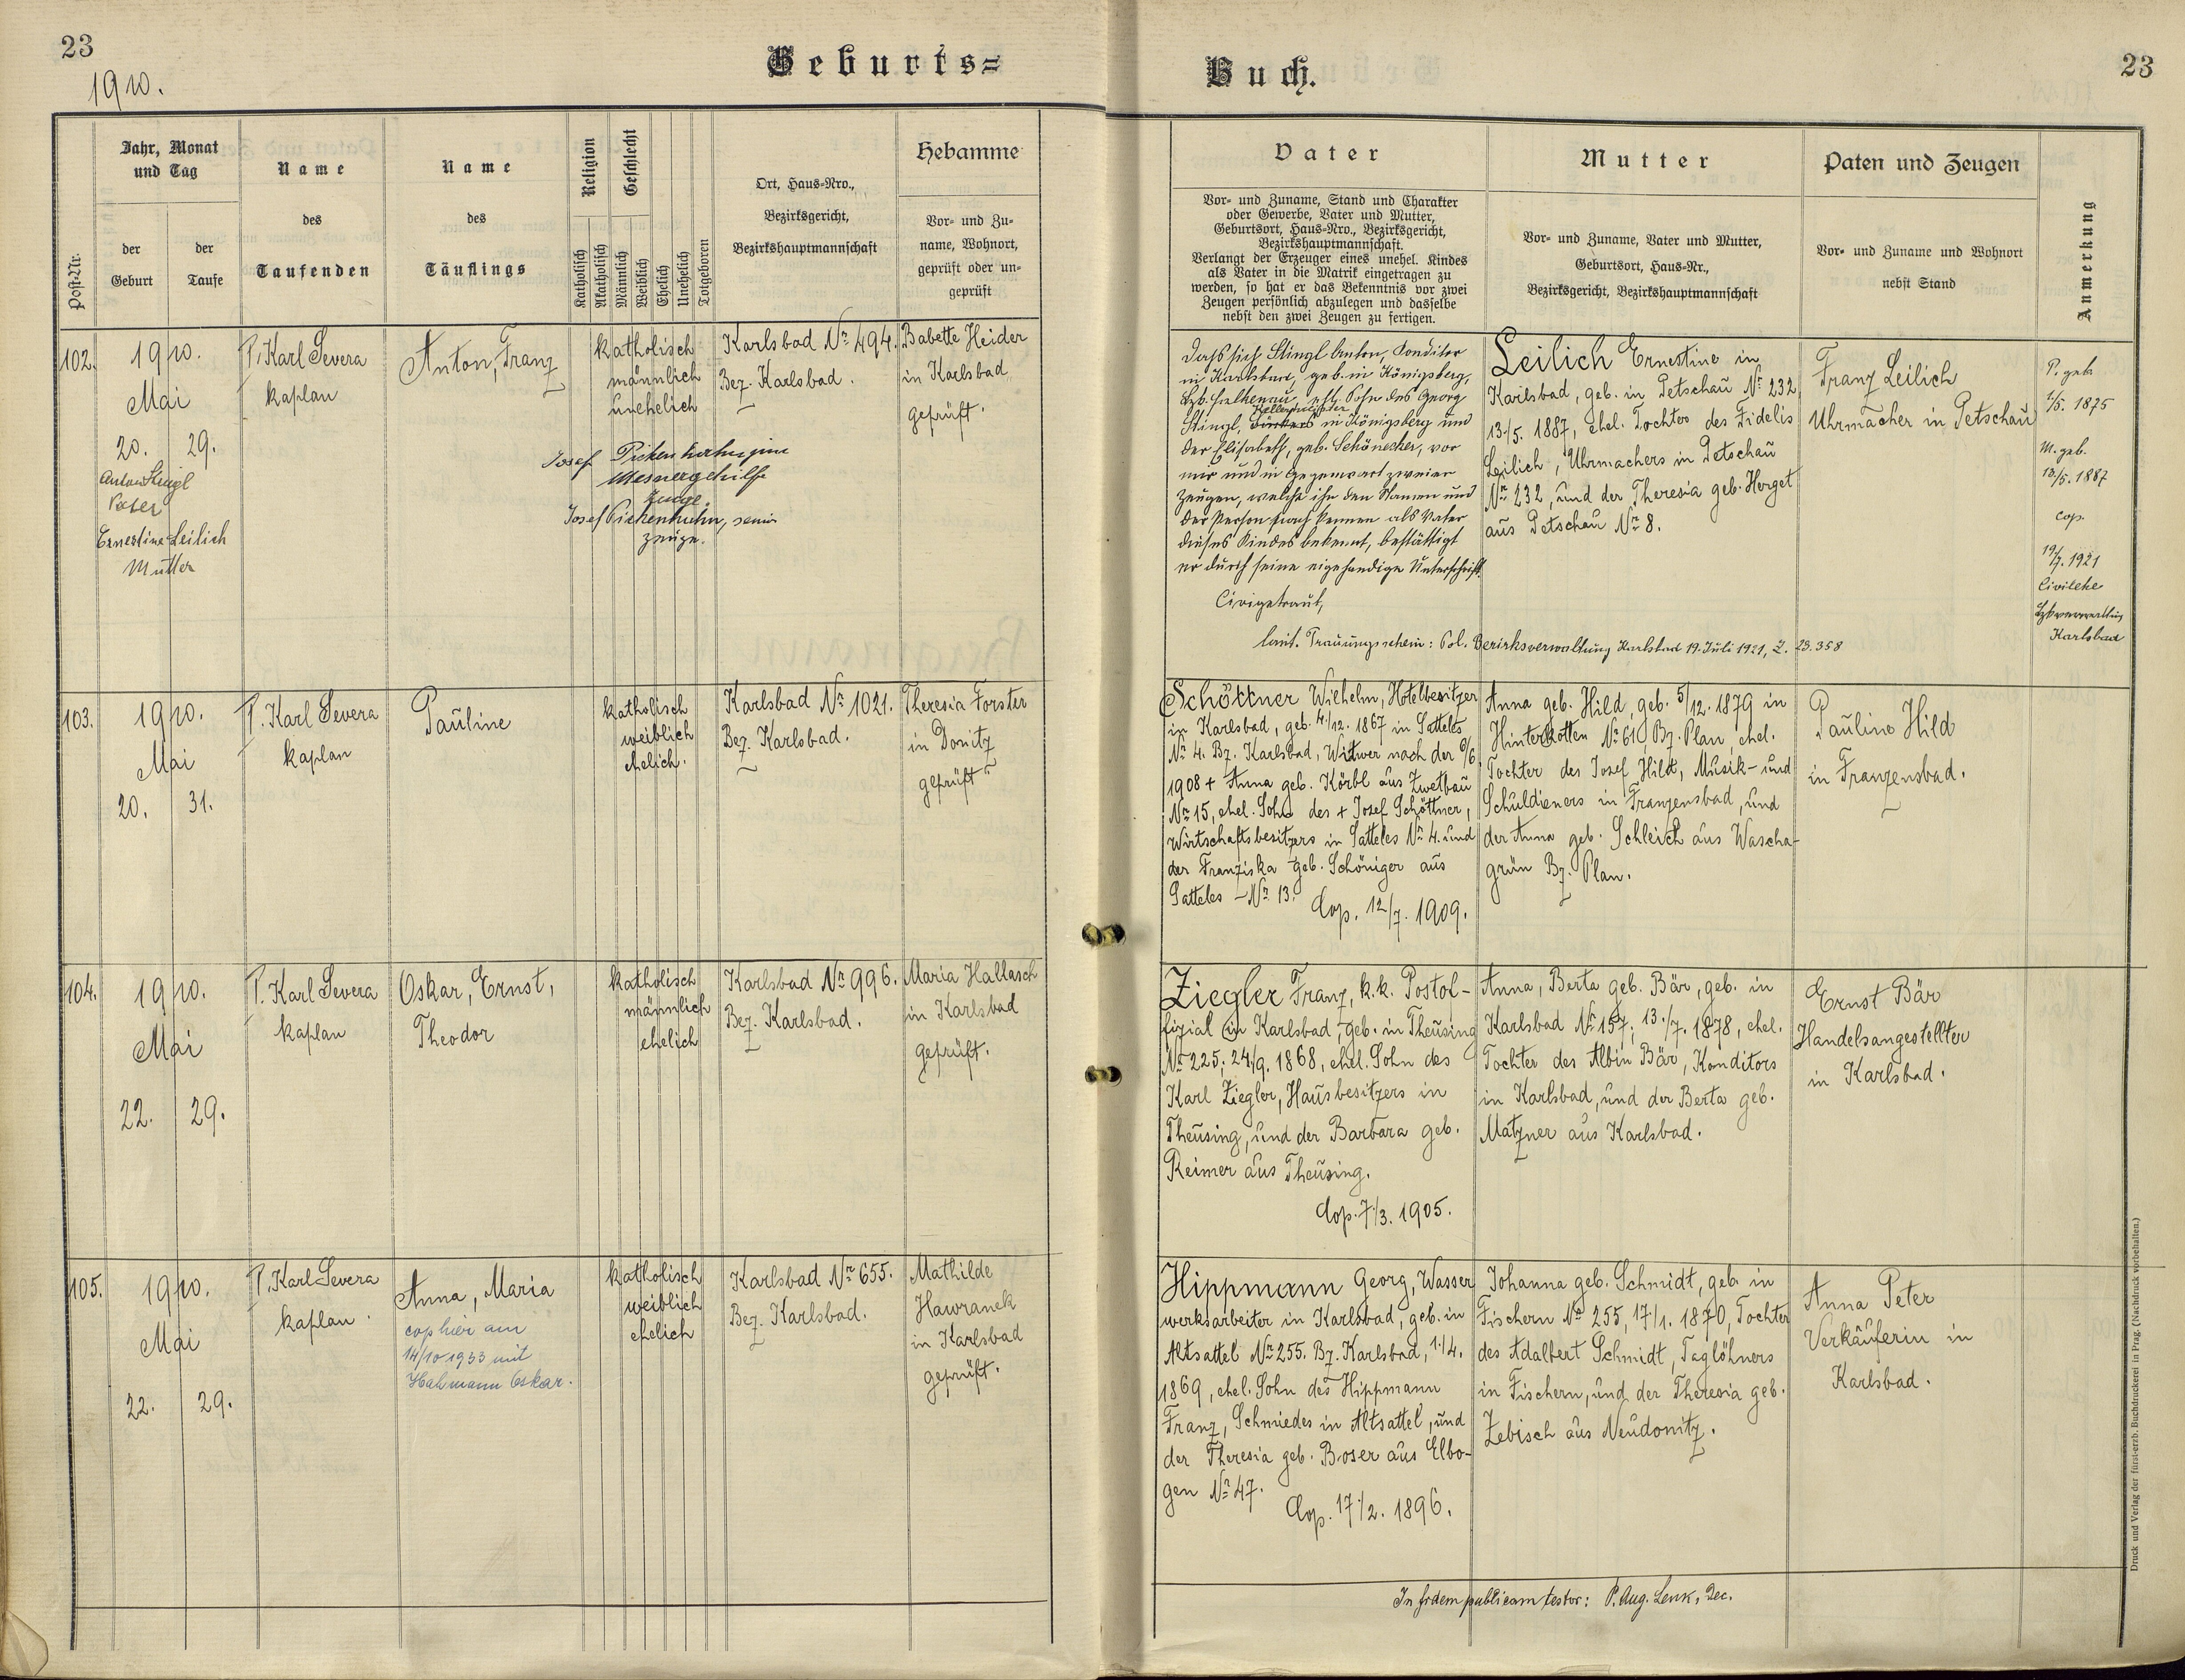 23
1910.
Geburts=
Post-Nr.
Jahr, Monat
und Tag
der
Geburt
der
Taufe
Name
des
Taufenden
Name
des
Täuflings
Religion
Katholisch
Akatholisch
Geschlecht
Männlich
Weiblich
Ehelich
Unehelich
Totgeboren
Ort, Haus=Nro.,
Bezirksgericht,
Bezirkshauptmannschaft
Hebamme
Vor= und Zu=
name, Wohnort,
geprüft oder un=
geprüft
102.
1910.
Mai
20. 29.
Anton Stingl
Vater
Ernestine Leilich
Mutter
P. Karl Severa
kaplan
Anton, Franz
katholisch
männlich
unehelich
Josef
Mesnergehilfe
Zeuge
Josef Pichenhuhn, senior
Zeuge.
Karlsbad Nr. 494.
Bez. Karlsbad.
Babette Heider
in Karlsbad
geprüft.
103.
1910.
Mai
20. 31.
P. Karl Severa
kaplan
Pauline
katholisch
weiblich
ehelich.
Karlsbad Nr. 1021.
Bez. Karlsbad.
Theresia Forster
in Donitz
geprüft
104.
1910.
Mai
22. 29.
P. Karl Severa
kaplan
Oskar, Ernst,
Theodor
katholisch
männlich
ehelich
Karlsbad Nr. 996.
Bez. Karlsbad.
Maria Hallasch
in Karlsbad
geprüft.
105.
1910.
Mai
22. 29.
P. Karl Severa
kaplan.
Anna, Maria
cop hier am
14/10 1933 mit
Hahmann Oskar.
katholisch
weiblich
ehelich
Karlsbad Nr. 655.
Bez. Karlsbad.
Mathilde
Hawranek
in Karlsbad
geprüft.
Buch.
23
Vater
Vor= und Zuname, Stand und Charakter
oder Gewerbe, Vater und Mutter,
Geburtsort, Haus=Nro., Bezirksgericht,
Bezirkshauptmannschaft.
Verlangt der Erzeuger eines unehel. Kindes
als Vater in die Matrik eingetragen zu
werden, so hat er das Bekenntnis vor zwei
Zeugen persönlich abzulegen und dasselbe
nebst den zwei Zeugen zu fertigen.
Mutter
Vor= und Zuname, Vater und Mutter,
Geburtsort, Haus=Nr.,
Bezirksgericht, Bezirkshauptmannschaft
Paten und Zeugen
Vor= und Zuname und Wohnort
nebst Stand
Anmerkung
Dass sich Stingl Anton, Konditor
in Karlsbad, geb. in Königsberg,
Bzk. Falkenau, ehl. Sohn des Georg
Stingl, in Königsberg und
der Elisabeth, geb. Schönecker, vor
mir und in Gegenwart zweier
Zeugen, welche ihn dem Namen und
der Person nach kennen als Vater
dieses Kindes bekennt, bestättigt
er durch seine eigehendige Unterschrift.
Civigetraut,
laut. Trauungsschein: Pol. Bezirksverwaltung Karlsbad 19. Juli 1921, Z. 23.358
Leilich Ernestine in
Karlsbad, geb. in Petschau Nr. 232
13./5. 1887, ehel. Tochter des Fidelis
Leilich, Uhrmachers in Petschau
Nr. 232, und der Theresia geb. Herget
aus Petschau Nr. 8.
Franz Leilich
Uhrmacher in Petschau
P. geb
1/5. 1875
M. geb.
13/5. 1887
cop.
19/7. 1921
Civilehe
Karlsbad
Schöttner Wilhelm, Hotelbesitzer
in Karlsbad, geb. 4./12. 1867 in Satteles
Nr. 4. Bz. Karlsbad, Witwer nach der 9/6
1908 + Anna geb. Körbl aus Zwetbau
Nr. 15, ehel. Sohn des + Josef Schöttner,
Wirtschaftsbesitzers in Satteles Nr. 4. und
der Franziska geb. Schöniger aus
Satteles – Nr. 13.
Cop. 12/7. 1909.
Anna geb. Hild, geb. 5/12. 1879 in
Hinterkotten Nr. 61, Bz. Plan, ehel.
Tochter des Josef Hild, Musik- und
Schuldieners in Franzensbad, und
der Anna geb. Schleich aus Wascha-
grün Bz. Plan.
Pauline Hild
in Franzensbad.
Ziegler Franz, k.k. Postof-
fizial in Karlsbad, geb. in Theusing
Nr. 225; 24/9. 1868, ehel. Sohn des
Karl Ziegler, Hausbesitzers in
Theusing, und der Barbara geb.
Reimer aus Theusing.
Cop. 7./3. 1905.
Anna, Berta geb. Bär, geb. in
Karlsbad Nr. 157; 13./7. 1878, ehel.
Tochter des Albin Bär, Konditors
in Karlsbad, und der Berta geb.
Matzner aus Karlsbad.
Ernst Bär
Handelsangestellter
in Karlsbad.
Hippmann Georg, Wasser
werksarbeiter in Karlsbad, geb. in
Altsattel Nr. 255. Bz. Karlsbad, 1./4.
1869, ehel. Sohn des Hippmann
Franz, Schmiedes in Altsattel, und
der Theresia geb. Boser aus Elbo-
gen Nr. 47.
Cop. 17./2. 1896.
Johanna geb. Schmidt, geb. in
Fischern Nr. 255, 17/1. 1870, Tochter
des Adalbert Schmidt, Taglöhners
in Fischern, und der Theresia geb.
Zebisch aus Neudonitz.
Anna Peter
Verkäuferin in
Karlsbad.
In fidem publicam testor: P. Aug. Lenk, Dec.
Druck und Verlag der fürst-erzb. Buchdruckerei in Prag. (Nachdruck vorbehalten.)